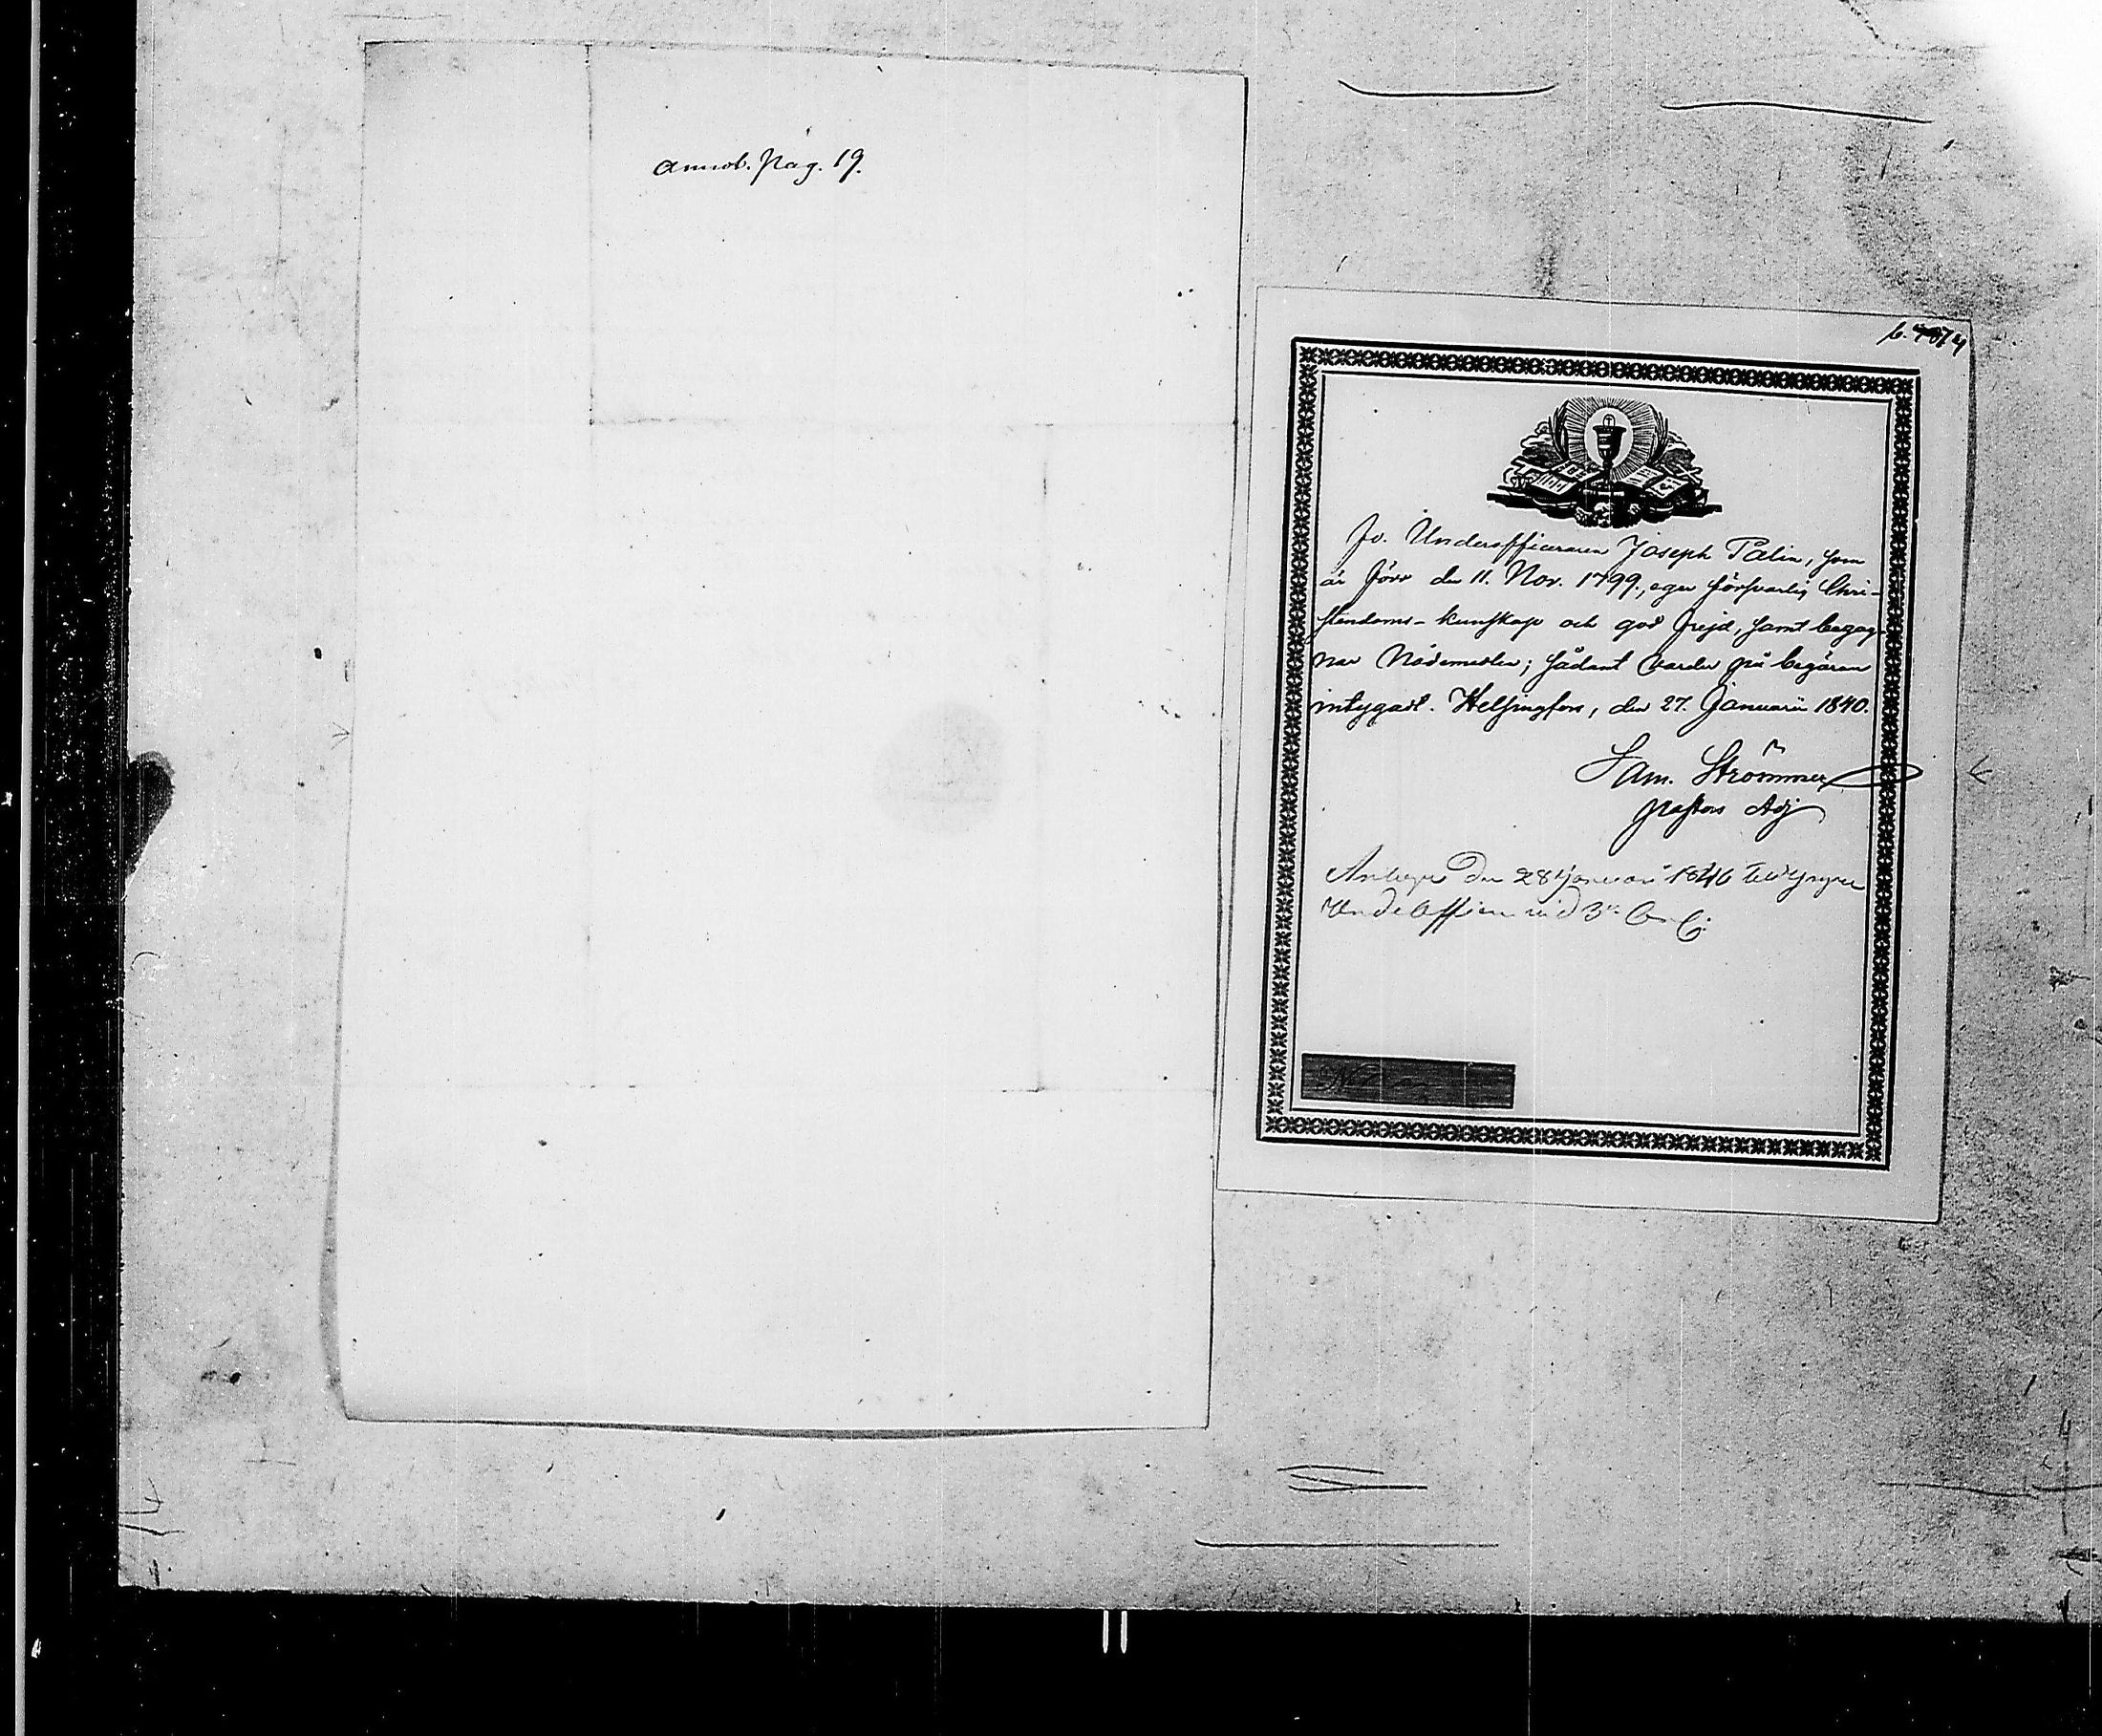 annot. pag. 19.
Fv. Underofficeraren Joseph Palin, som
är född den 11. Nov. 1799, eger försvarlig Chri-
stendoms-kunskap och god frejd, samt begag-
nar Nådemedlen; sådant varder på begäran
intygadt. Helsingfors, den 27. Januarii 1840.
Sam. Strömmer
Pastors Adj
den 28 Januari 1840
Underofficer vid 3